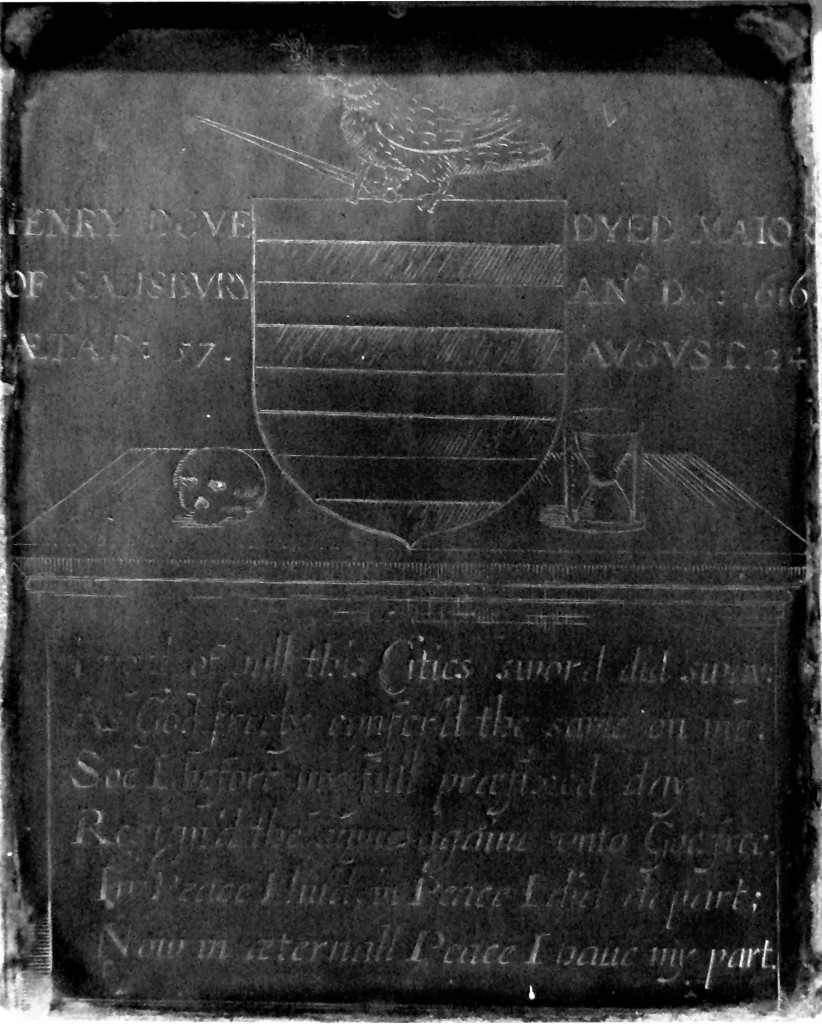 HENRY DOVE DYED MAIOR
OF SALISBVRY AN° DŃI: 1616.
ÆTAT: 57. AVGVST. 24
of this Cities sword did sway:
As God freely confer'd the same on me,
Soe I before my full præfixed day
Resign'd the same againe vnto God free.
In Peace I liud, in Peace I did depart;
Now in æternall Peace I haue my part.